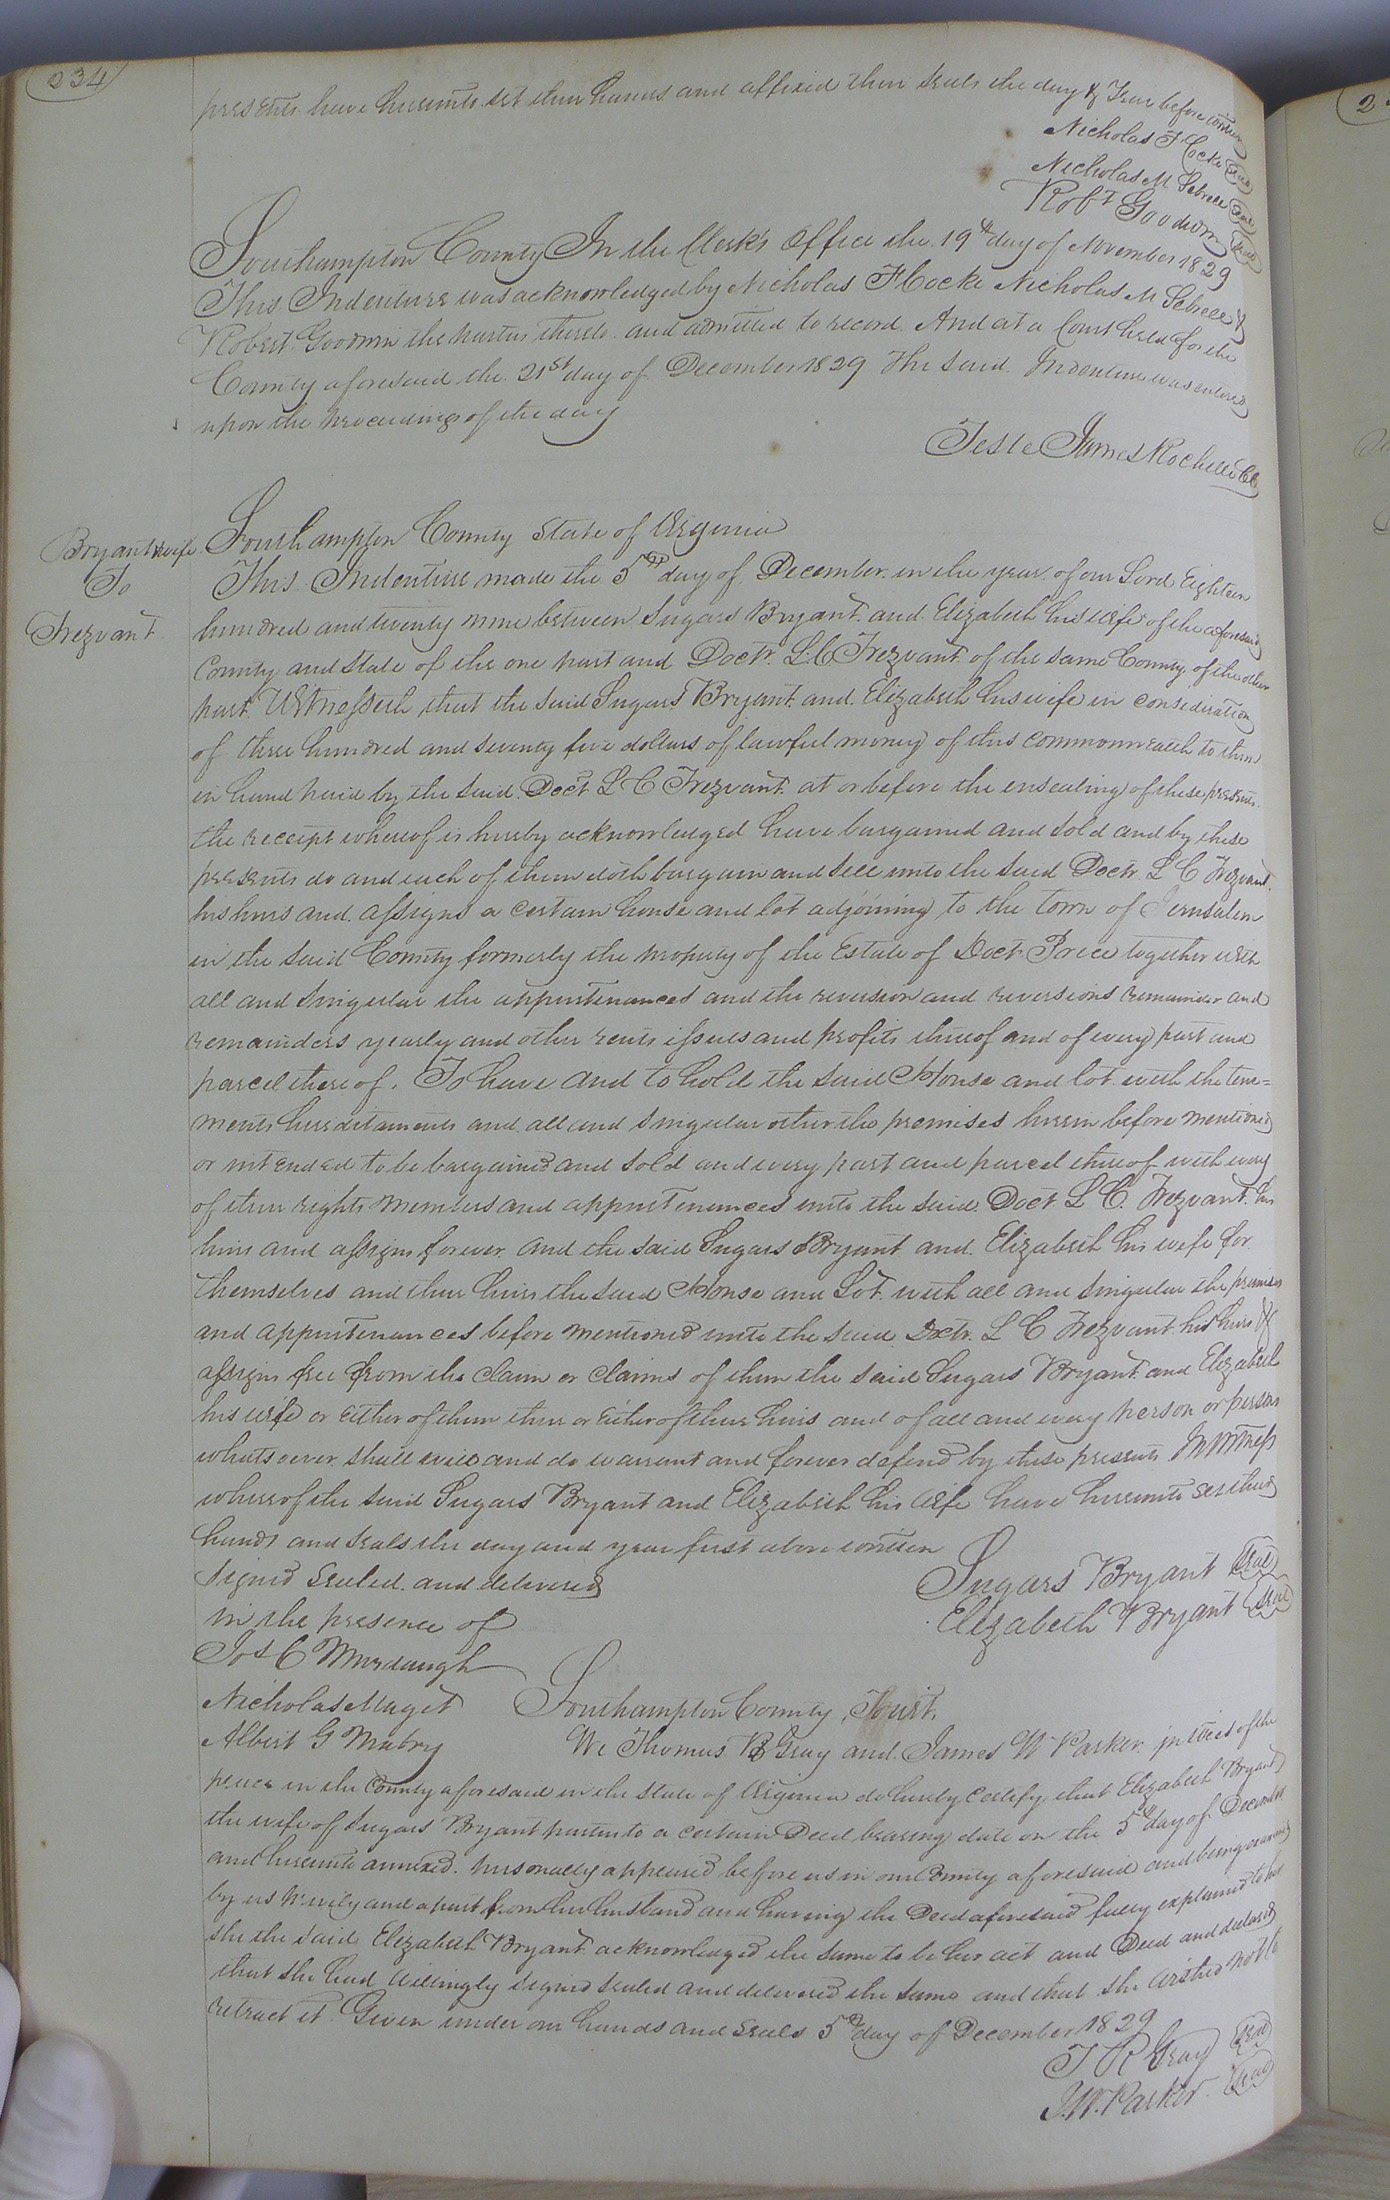 234
presents have hereunto set their hands and affixed their seals the day & Year before written
Nicholas F Cocke seal
Nicholas M Sebrell seal
Robt Goodwin seal
Southampton County In the Clerk's Office the 19th day of November 1829
This Indenture was acknowledged by Nicholas F Cocke Nicholas M Sebrell &
Robert Goodwin the parties thereto and admitted to record. And at a Court held for the
County aforesaid the 21st day of December 1829 The said Indenture was entered
upon the proceedings of the day
Teste James Rochelle Cl
Bryant & wife
To
Trezvant
Southampton County State of Virginia
This Indenture made the 5th day of December in the year of our Lord Eighteen
hundred and twenty nine between Sugars Bryant and Elizabeth his wife of the aforesaid
County and State of the one part and Doctr. L. C. Trezvant of the same County of the other
part. Witnesseth that the said Sugars Bryant and Elizabeth his wife in consideration
of three hundred and seventy five dollars of lawful money of this commonwealth to them
in hand paid by the said Doct L C Trezvant at or before the ensealing of these presents
the receipt whereof is hereby acknowledged have bargained and sold and by these
presents do and each of them doth bargain and sell unto the said Doctr L C Trezvant
his heirs and assigns a certain house and lot adjoining to the town of Jerusalem
in the said County formerly the property of the Estate of Doct Price together with
all and singular the appurtenances and the reversion and reversions remainder and
remainders yearly and other rents issues and profits thereof and of every part and
parcel thereof. To have and to hold the said House and lot with the tene=
ments hereditaments and all and singular other the premises herein before mentioned
or intended to be bargained and sold and every part and parcel thereof with every
of their rights members and appurtenances unto the said Doct L C. Trezvant his
heirs and assigns forever and the said Sugars Bryant and Elizabeth his wife for
themselves and their heirs the said House and Lot with all and singular the premises
and appurtenances before mentioned unto the said Doctr. L C Trezvant his heirs &
assigns free from the claim or claims of them the said Sugars Bryant and Elizabeth
his wife or either of them their or either of their heirs and of all and every person or persons
whatsoever shall will and do warrant and forever defend by these presents In Witness
whereof the said Sugars Bryant and Elizabeth his wife have hereunto set their
hands and seals the day and year first above written
Signed Sealed and delivered
in the presence of
Sugars Bryant seal
Elizabeth Bryant seal
Jos C Murdaugh
Nicholas Maget
Albert G Mabry
Southampton County, Towit,
We Thomas R Gray and James W Parker justices of the
peace in the County aforesaid in the State of Virginia do hereby certify that Elizabeth Bryant
the wife of Sugars Bryant parties to a certain Deed bearing date on the 5th day of December
and hereunto annexed. personally appeared before us in our County aforesaid and being examined
by us privily and apart from her husband and having the Deed aforesaid fully explained to her
she the said Elizabeth Bryant acknowledged the same to be her act and Deed and declared
that she had willingly signed sealed and delivered the same and that she wished not to
retract it. Given under our hands and seals 5th day of December 1829
T R Gray seal
J. W. Parker seal